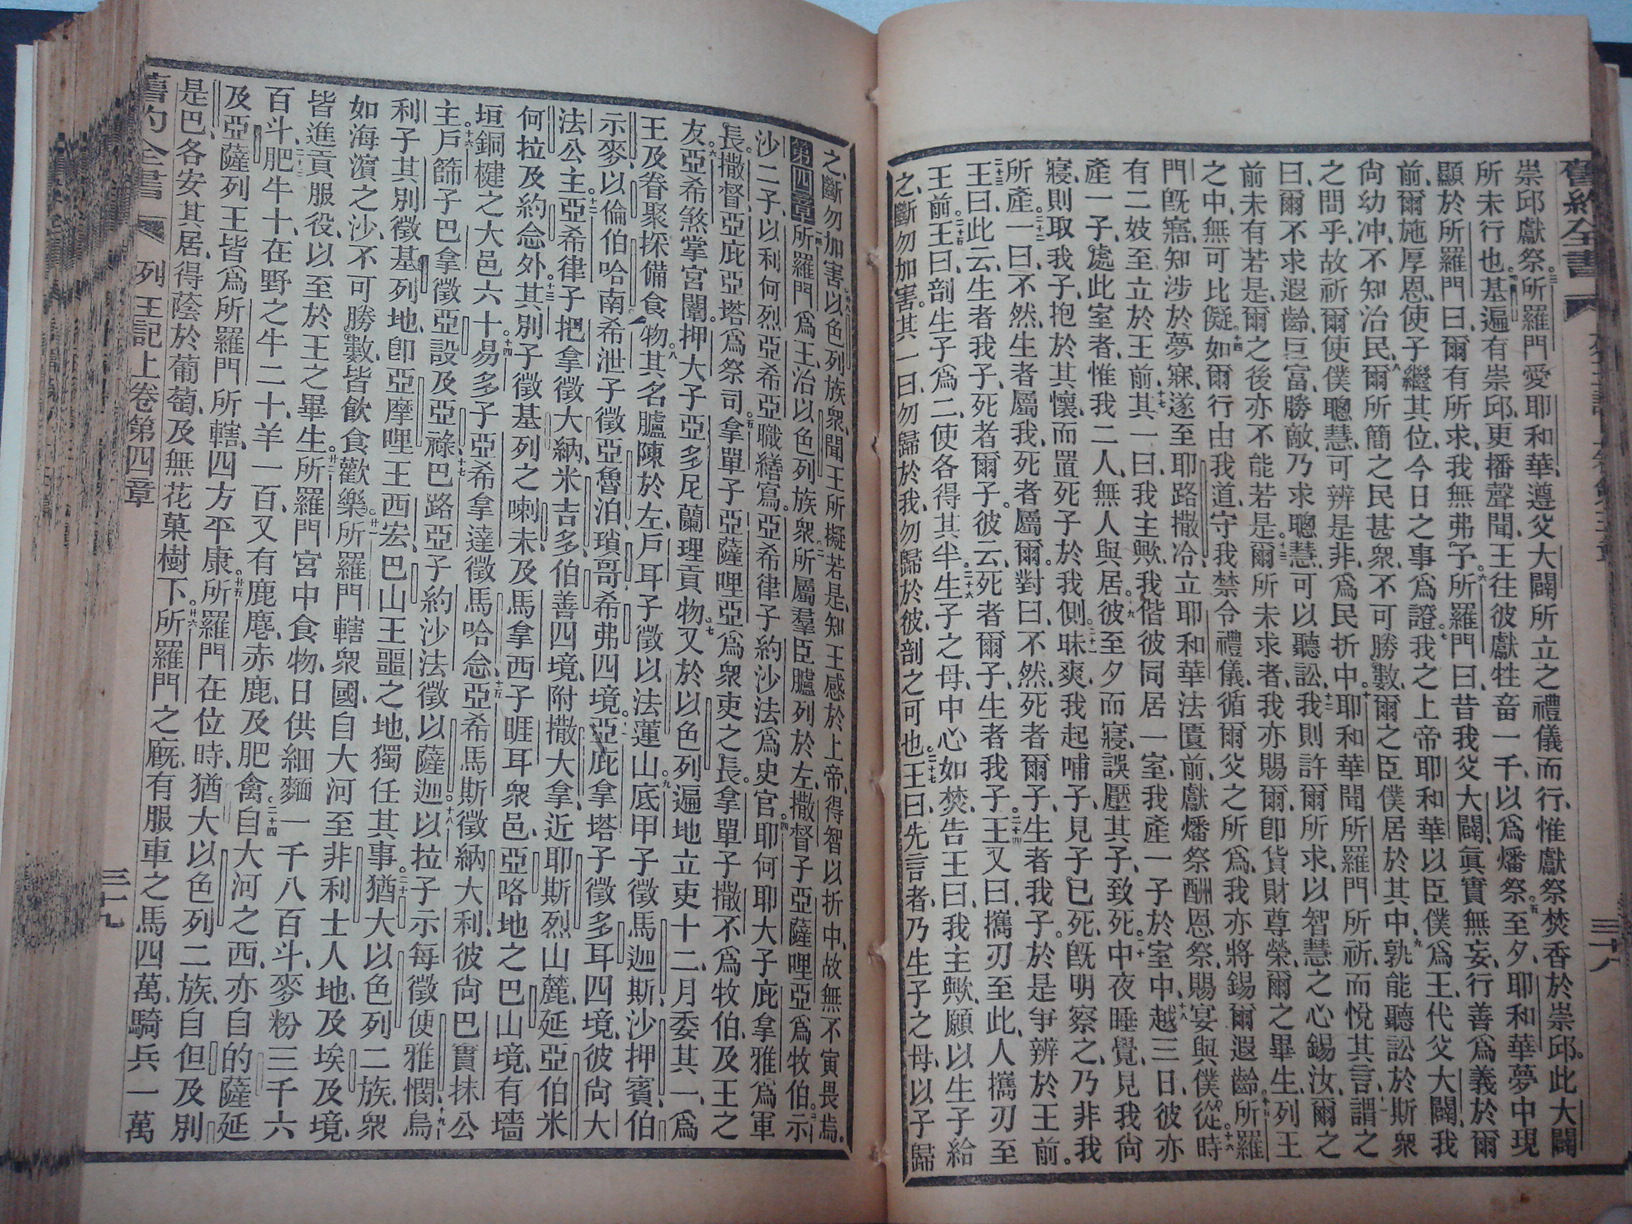 舊約全書
崇邱獻祭、所羅門愛耶和華、遵父大闢所立之禮儀而行、惟獻祭焚香於崇邱。此大闢
所未行也、基遍有崇邱、更播聲聞、王往彼獻牲音一千、以爲燔祭。至夕、耶和華夢中現
顯於所羅門曰、爾有所求、我無弗予。所羅門曰、昔我父大闢、眞實無妄、行善爲義於爾
前、爾施厚恩、使子繼其位、今日之事爲證。我之上帝耶和華、以臣僕爲王、代父大闢、我
尙幼冲、不知治民。爾所簡之民甚衆、不可勝數、爾之臣僕居於其中、孰能聽訟於斯衆
之間乎、故祈爾使僕聰慧、可辨是非、爲民折中。耶和華聞所羅門所祈而悅其言、謂之
曰、爾不求遐齡巨富勝敵、乃求聰慧、可以聽訟、我則許爾所求、以智慧之心錫汝、爾之
前未有若是、爾之後亦不能若是。爾所未求者、我亦賜爾、卽貨財尊榮、爾之畢生、列王
之中、無可比儗。如爾行由我道、守我禁令禮儀、循爾父之所爲、我亦將錫爾遐齡。所羅
門旣寤、知涉於夢寐、遂至耶路撒冷、立耶和華法匱前、獻燔祭酬恩祭、賜宴與僕從。時
有二妓至、立於王前。其一曰、我主歟、我偕彼同居一室、我產一子於室中、越三日、彼亦
產一子、處此室者、惟我二人、無人與居。彼至夕而寢、誤壓其子、致死。中夜睡覺、見我尙
寢、則取我子抱於其懷、而置死子於我側。昧爽、我起哺子、見子已死、旣明察之、乃非我
所產。一曰、不然、生者屬我、死者屬爾。對曰、不然、死者爾子、生者我子。於是爭辨於王前。
王曰、此云、生者我子、死者爾子。彼云、死者爾子、生者我子。王又曰、攜刃至此、人攜刃至
王前。王曰、剖生子爲二、使各得其半。生子之母、中心如焚、告王曰、我主歟、願以生子給
之、斷勿加害。其一曰、勿歸於我、勿歸於彼、剖之可也。王曰、先言者、乃生子之母、以子歸
三十八
之、斷勿加害、以色列族衆、聞王所擬若是、知王感於上帝、得智以折中、故無不寅畏焉。
第四章 所羅門爲王、治以色列族衆、所屬羣臣、臚列於左。撒督子亞薩哩亞爲牧伯。示
沙二子、以利何烈、亞希亞、職繕寫。亞希律子約沙法爲史官。耶何耶大子庇拿雅爲軍
長。撒督、亞庇亞塔爲祭司。拿單子亞薩哩亞爲衆吏之長。拿單子撒不爲牧伯、及王之
友。亞希煞掌宮闈。押大子亞多尼蘭理貢物。又於以色列遍地立吏十二、月委其一、爲
王及眷聚採備食物。其名臚陳於左、戶耳子徵以法蓮山。底甲子徵馬迦斯、沙押賓、伯
示麥、以倫伯哈南。希泄子徵亞魯泊、瑣哥、希弗四境。亞庇拿塔子徵多耳四境、彼尙大
法公主。亞希律子把拿徵大納、米吉多、伯善四境、附撒大拿、近耶斯烈山麓、延亞伯米
何拉、及約念外。其別子徵基列之喇未、及馬拿西子睚耳衆邑、亞咯地之巴山境、有墻
垣銅楗之大邑六十。易多子亞希拿達徵馬哈念。亞希馬斯徵納大利、彼尙巴實抹公
主。戶篩子巴拿徵亞設及亞祿。巴路亞子約沙法徵以薩迦。以拉子示每徵便雅憫。烏
利子其別徵基列地、卽亞摩哩王西宏、巴山王噩之地、獨任其事。猶大以色列二族、衆
如海濵之沙、不可勝數、皆飮食歡樂。所羅門轄衆國、自大河至非利士人地、及埃及境、
皆進貢服役、以至於王之畢生。所羅門宮中食物、日供細麵一千八百斗、麥粉三千六
百斗、肥牛十、在野之牛二十、羊一百、又有鹿麀赤鹿、及肥禽。自大河之西、亦自的薩延
及亞薩、列王皆爲所羅門所轄、四方平康。所羅門在位時、猶大以色列二族、自但及別
是巴、各安其居、得蔭於葡萄及無花菓樹下。所羅門之廐有服車之馬四萬、騎兵一萬
舊約全書 列王記上卷 第四章 三十九